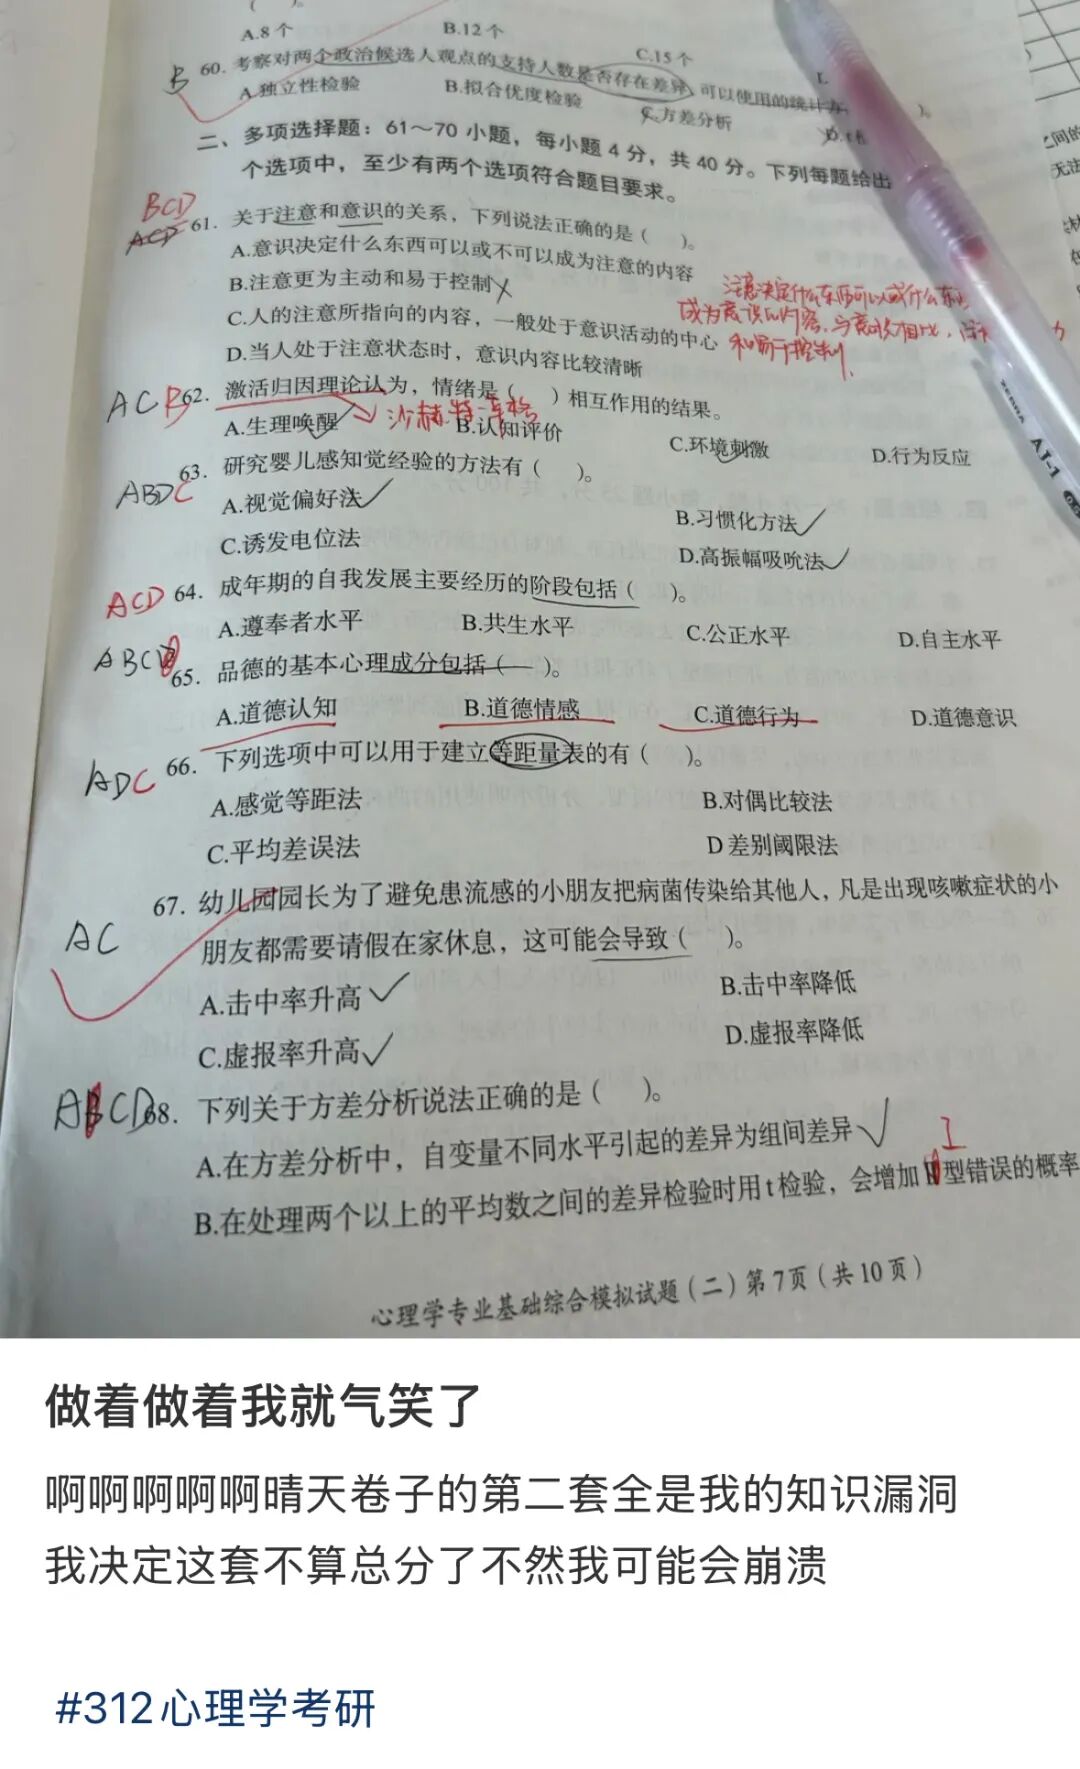 ( )。
A.8个 B.12个 C.15个
B 60. 考察对两个政治候选人观点的支持人数是否存在差异,可以使用的统计方 )。
A.独立性检验 B.拟合优度检验 C.方差分析
二、多项选择题：61～70小题，每小题4分，共40分。下列每题给出
个选项中，至少有两个选项符合题目要求。
BCD
ACD 61. 关于注意和意识的关系，下列说法正确的是( )。
A.意识决定什么东西可以或不可以成为注意的内容
B.注意更为主动和易于控制
C.人的注意所指向的内容，一般处于意识活动的中心
D.当人处于注意状态时，意识内容比较清晰
注意决定什么东西可以或什么东
成为意识的内容,与意识相比,
和易于控制.
ACB 62. 激活归因理论认为，情绪是( )相互作用的结果。
沙赫特-辛格
A.生理唤醒 B.认知评价 C.环境刺激 D.行为反应
ABDC 63. 研究婴儿感知觉经验的方法有( )。
A.视觉偏好法 B.习惯化方法
C.诱发电位法 D.高振幅吸吮法
ACD 64. 成年期的自我发展主要经历的阶段包括( )。
A.遵奉者水平 B.共生水平 C.公正水平 D.自主水平
ABCD 65. 品德的基本心理成分包括( )。
A.道德认知 B.道德情感 C.道德行为 D.道德意识
ADC 66. 下列选项中可以用于建立等距量表的有( )。
A.感觉等距法 B.对偶比较法
C.平均差误法 D差别阈限法
AC 67. 幼儿园园长为了避免患流感的小朋友把病菌传染给其他人，凡是出现咳嗽症状的小
朋友都需要请假在家休息，这可能会导致( )。
A.击中率升高 B.击中率降低
C.虚报率升高 D.虚报率降低
ABCD 68. 下列关于方差分析说法正确的是( )。
A.在方差分析中，自变量不同水平引起的差异为组间差异
I
B.在处理两个以上的平均数之间的差异检验时用t检验，会增加II型错误的概率
心理学专业基础综合模拟试题(二)第7页(共10页)
ZEBRA AJ-1
做着做着我就气笑了
啊啊啊啊啊晴天卷子的第二套全是我的知识漏洞
我决定这套不算总分了不然我可能会崩溃
#312心理学考研